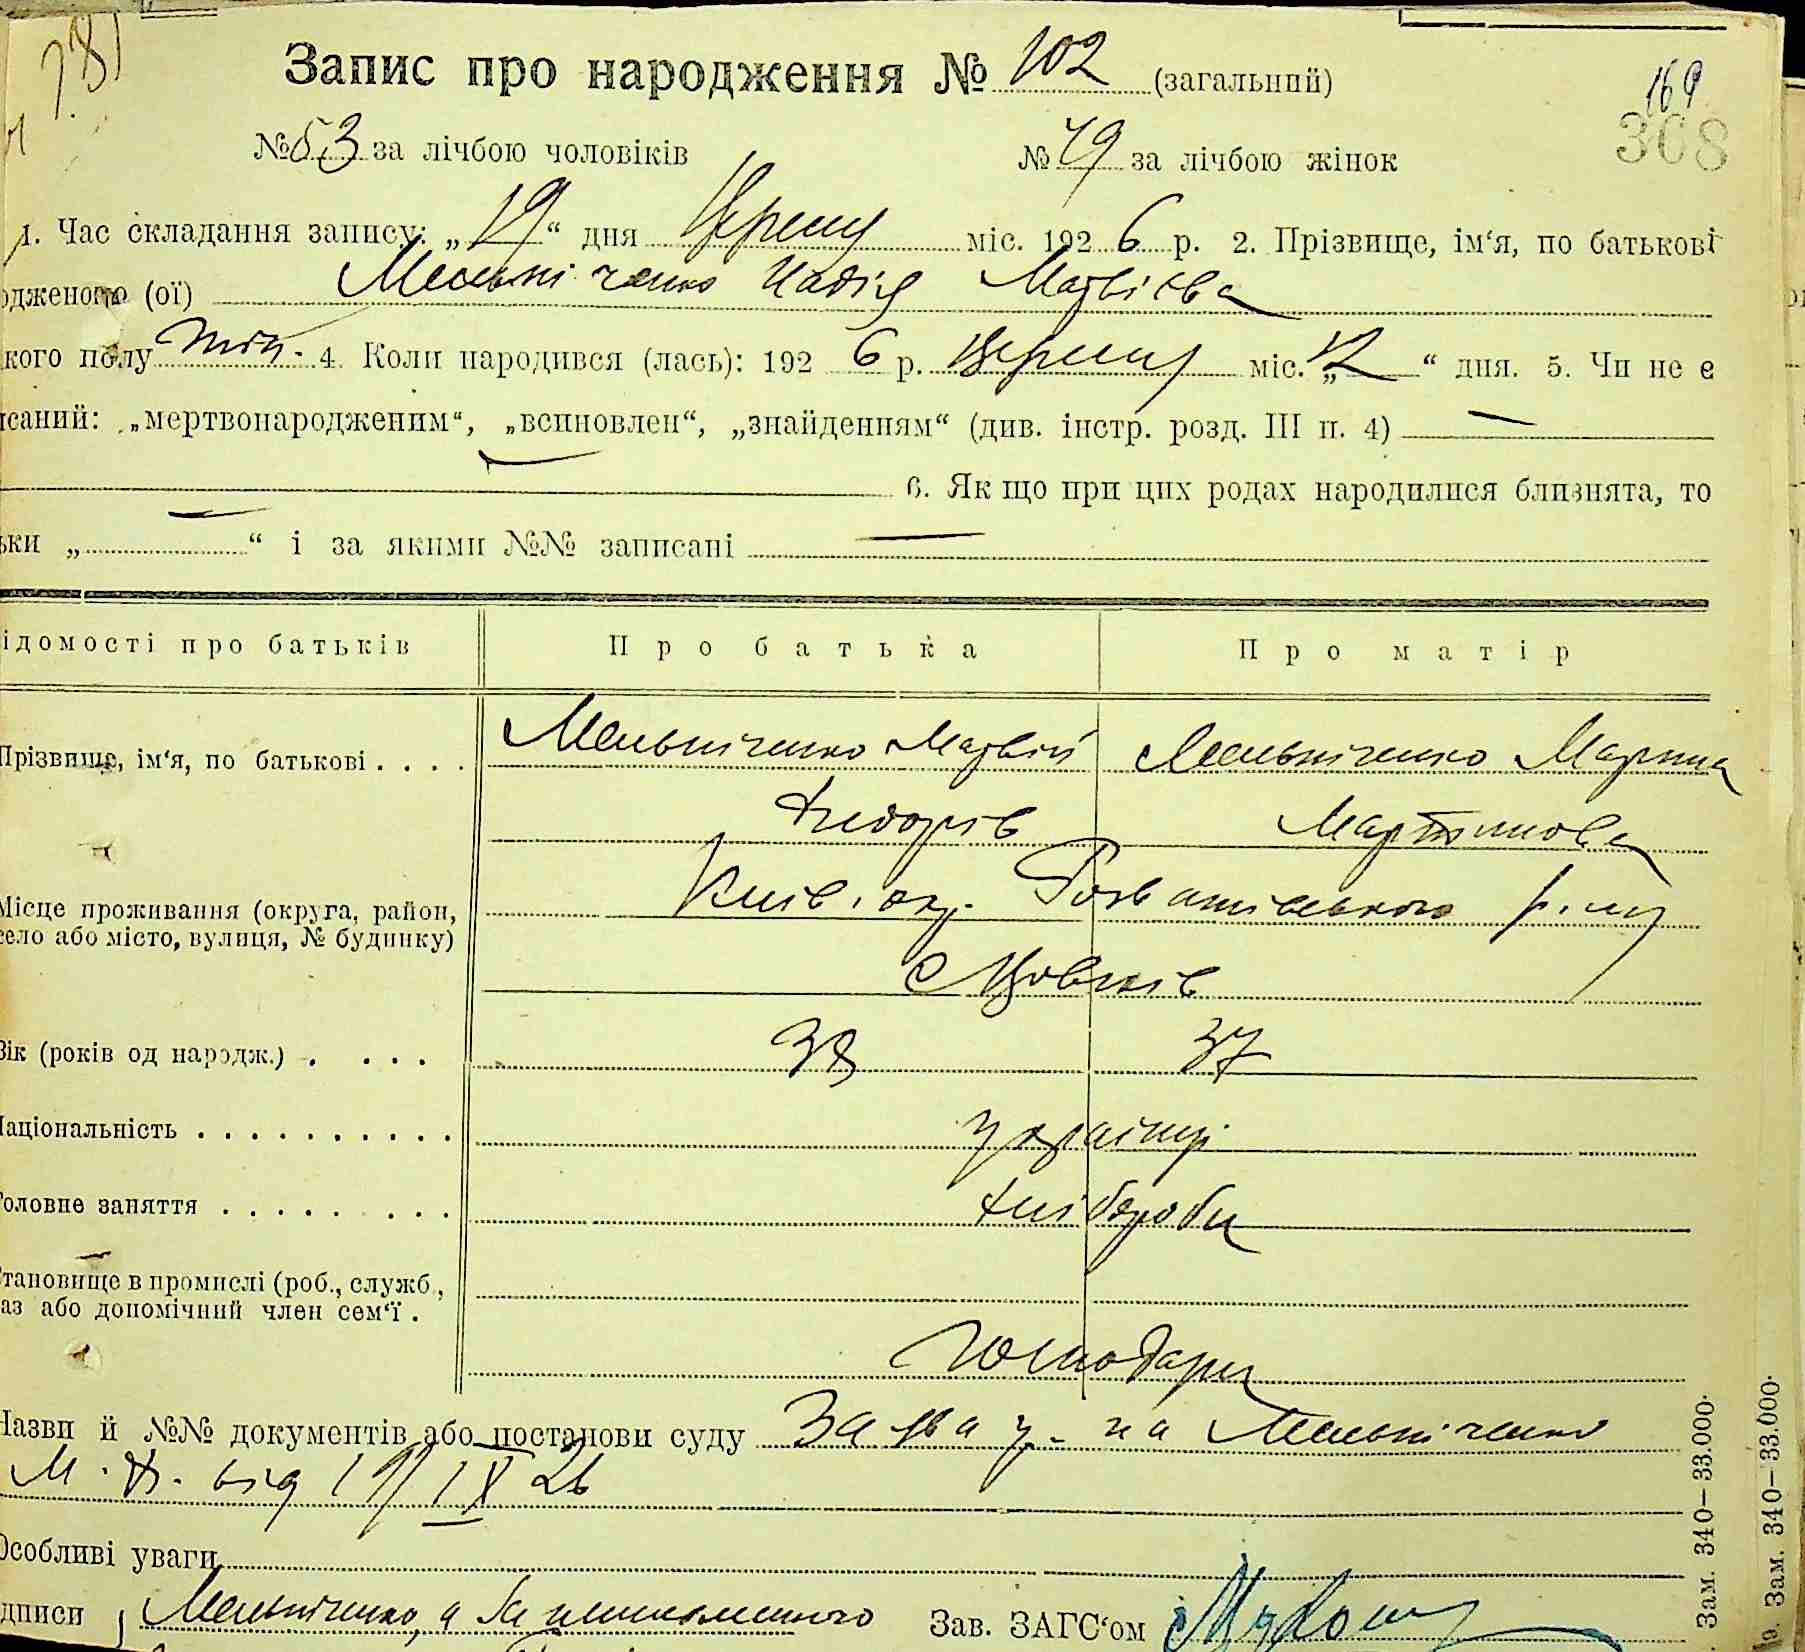 781
Запис про народження № 102 (загальний)
169
368
№ 53 за лічбою чоловіків № 49 за лічбою жінок
1. Час складання запису: „19“ дня Вересня міс. 1926 р. 2. Прізвище, ім‘я, по батькові
одженого (ої) Мельніченко Надія Матвієва
кого полу жін. 4. Коли народився (лась): 1926 р. Вересня міс. „12“ дня. 5. Чи не є
исаний: „мертвонародженим“, „всиновлен“, „знайденням“ (див. інстр. розд. III п. 4) —
6. Як що при цих родах народилися близнята, то
ьки „—“ і за якими №№ записані —
ідомості про батьків Про батька Про матір
Прізвище, ім‘я, по батькові . . . . Мельніченко Матвій Мельніченко Марина
Мартинова
Місце проживання (округа, район, село або місто, вулиця, № будинку) Київ. окр. Розважівського р-ну
с
Вік (років од народж.) . . . . 38 37
Національність . . . . . . . . . . українці
Головне заняття . . . . . . . . . хлібороби
Становище в промислі (роб., служб., аз або допомічний член сем‘ї .
Господарі
Назви й №№ документів або постанови суду Заява гр. на Мельніченко
М. Ф. від 19/IX 26
Особливі уваги
дписи Мельніченко, а за неписьменного Зав. ЗАГС‘ом
Зам. 340–33.000.
Зам. 340–33.000.